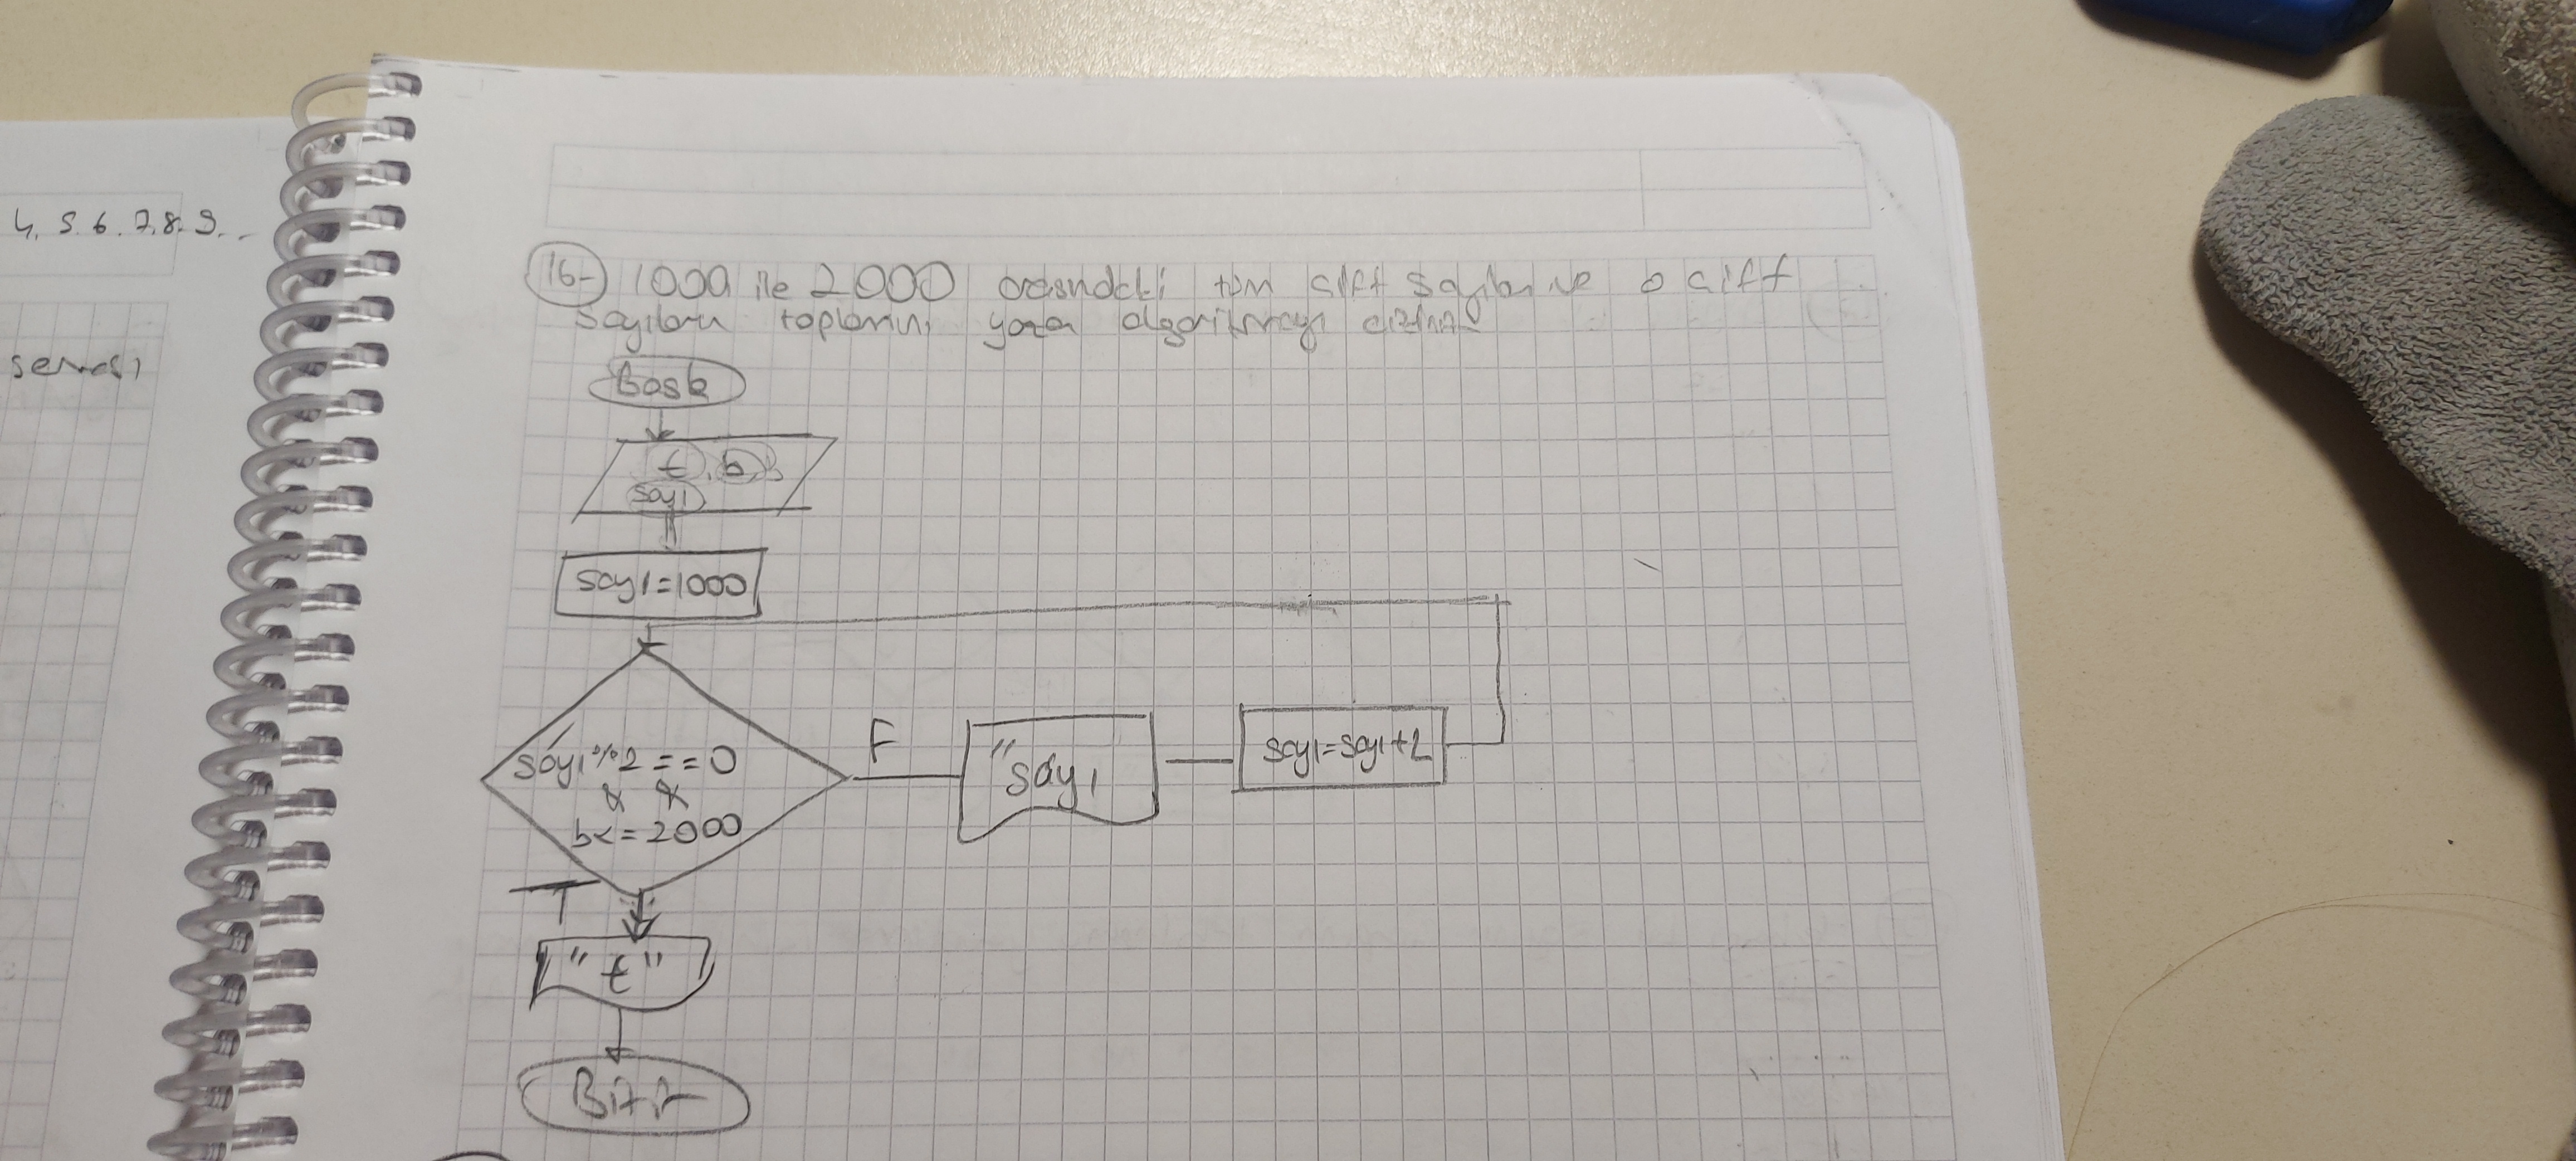 4, 5, 6, 7, 8, 9...
seması
16-) 1000 ile 2000 arasındaki tüm çift sayıları ve o çift
sayıların toplamını yazan algoritmayı çiziniz
başla
t, b,
sayı
sayı=1000
sayı%2==0
&&
b<=2000
F
"sayı
sayı=sayı+2
T
"t"
Bitir